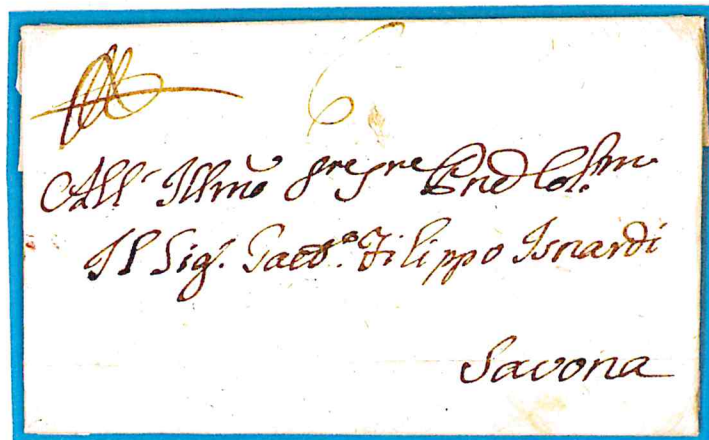 6
All' Illmo Sre Sre Pne Colmo
Il Sig. Gaet.o Filippo Isnardi
Savona